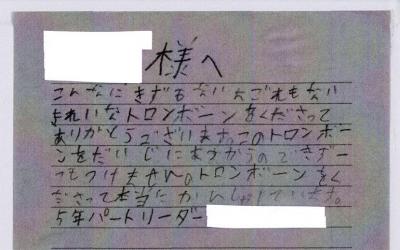 様へ
こんなにきずもないよごれもない
きれいなトロンボーンをくださって
ありがとうございます。このトロンボー
ンをだいじにあつかうのできず一
つもつけません。トロンボーンをく
ださって本当にかんしゃしています。
5年パートリーダー